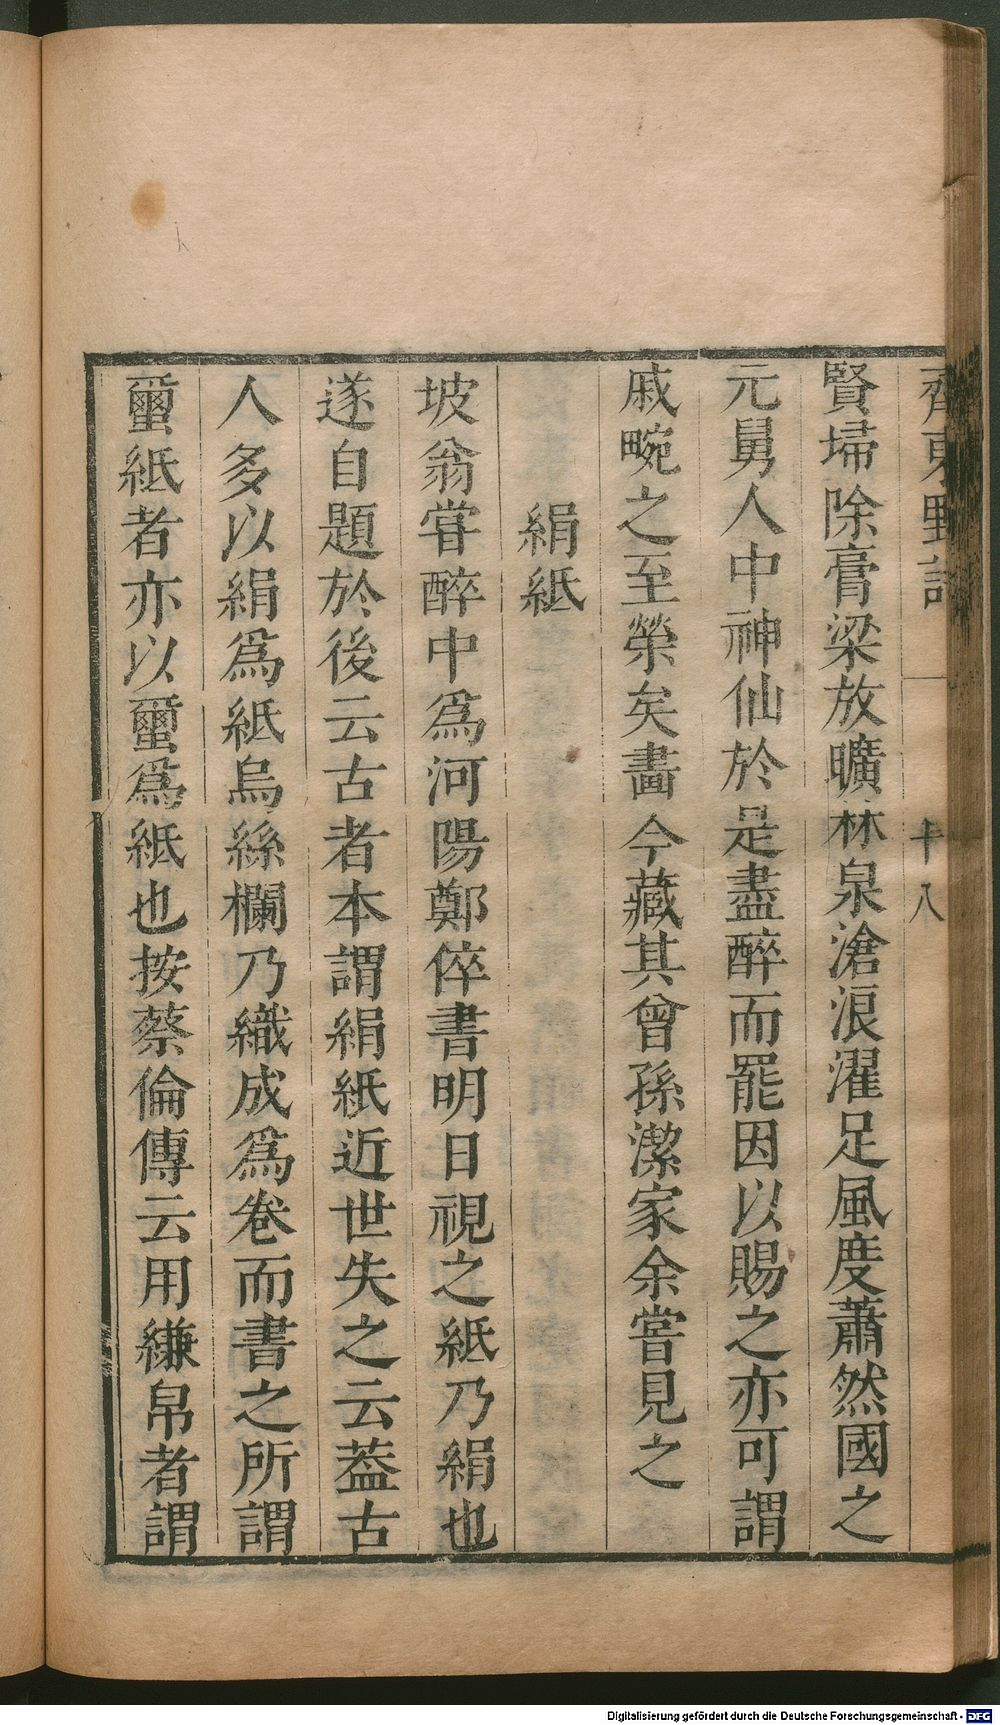 齊東野語 十八
賢埽除膏梁放曠林泉滄浪濯足風度蕭然國之
元舅人中神仙於是盡醉而罷因以賜之亦可謂
戚畹之至榮矣畵今藏其曾孫潔家余嘗見之
絹紙
坡翁嘗醉中爲河陽鄭倅書明日視之紙乃絹也
遂自題於後云古者本謂絹紙近世失之云葢古
人多以絹爲紙烏絲欄乃織成爲卷而書之所謂
璽紙者亦以璽爲紙也按蔡倫傳云用縑帛者謂
Digitalisierung gefördert durch die Deutsche Forschungsgemeinschaft - DFG